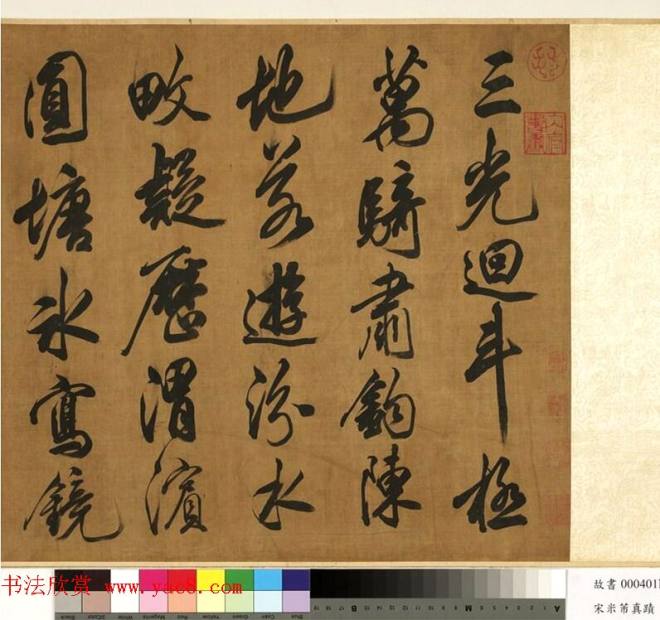 三光迴斗極
萬騎肅鈎陳
地若遊汾水
畋疑歷渭濱
圓塘冰寫鏡
书法欣赏 www.yac8.com
故書 000401
宋米芾真蹟